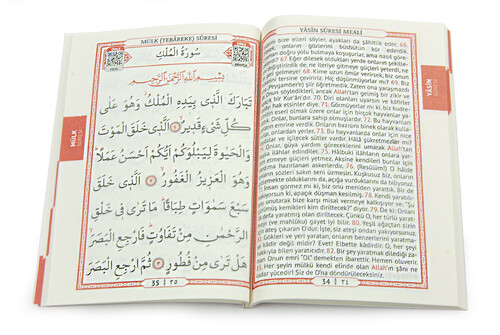 MÜLK (TEBÂREKE) SÛRESİ
سُورَةُ الْمُلْكِ
بِسْمِ اللّٰهِ الرَّحْمٰنِ الرَّحِيمِ
تَبَارَكَ الَّذِى بِيَدِهِ الْمُلْكُ وَهُوَ عَلٰى
كُلِّ شَىْءٍ قَدِيرٌ ١ اَلَّذِى خَلَقَ الْمَوْتَ
وَالْحَيٰوةَ لِيَبْلُوَكُمْ اَيُّكُمْ اَحْسَنُ عَمَلًا
وَهُوَ الْعَزِيزُ الْغَفُورُ ٢ اَلَّذِى خَلَقَ
سَبْعَ سَمٰوَاتٍ طِبَاقًا مَا تَرٰى فِى خَلْقِ
الرَّحْمٰنِ مِنْ تَفَاوُتٍ فَارْجِعِ الْبَصَرَ
هَلْ تَرٰى مِنْ فُطُورٍ ٣ ثُمَّ ارْجِعِ الْبَصَرَ
35 | ٣٥
MÜLK
SÛRESİ
YÂSÎN SÛRESİ MEALİ
bize elleri söyler, ayakları da şahitlik eder. 66.
onların gözlerini büsbütün kör ederdik.
67. Eğer dileseydik oldukları yerde onların şekille-
ne ileriye gitmeye güçleri yeterdi, ne
geri gelmeye! 68. Kime uzun ömür verirsek, biz onun
Hiç düşünmüyorlar mı? 69. Biz
(Peygamber'e) şiir öğretmedik. Zaten ona yaraşmazdı
Onun söyledikleri, ancak Allah'tan gelmiş bir zikir ve
bir Kur'an'dır. 70. Diri olanları uyarsın ve kâfirler
71. Görmüyorlar mı ki, biz kudre-
eseri olmak üzere onlar için birçok hayvan
bunlara sahip olmuşlardır. 72. Bu hayvanları
emrine verdik. Onların bazısını binek olarak kullanır-
73. Bu hayvanlarda onlar için nice
ve içilecek sütler vardır. Hâlâ şükretmezler mi?
74.
ilâhlar edindiler. 75. Hâlbuki ilâhların onlara
etmeye güçleri yetmez. Aksine kendileri onlar için
hazırlanan askerlerdir. 76. (Resûlüm!) O hâlde
sözleri sakın seni üzmesin. Kuşkusuz biz, onların
gizlemekte olduklarını da, açığa vurduklarını da biliyoruz.
77. İnsan görmez mi ki, biz onu meniden yarattık. Bir de
bakıyorsun ki, apaçık düşman kesilmiş. 78. Kendi
yaratılışını unutarak bize karşı misal vermeye kalkışıyor ve: "Şu
çürümüş kemikleri kim diriltecek?" diyor. 79. De ki: Onları
yaratmış olan diriltecek. Çünkü O, her türlü yarat-
mayı gayet iyi bilir. 80. Yeşil ağaçtan sizin
için ateş çıkaran O'dur. İşte, siz ateşi ondan yakıyorsunuz.
81. Gökleri ve yeri yaratan, onların benzerlerini yaratma-
ya kâdir değil midir? Evet! Elbette kâdirdir. O, her şeyi
hakkıyla bilen yaratıcıdır. 82. Bir şey yaratmak dilediği za-
man Onun emri "Ol" demekten ibarettir. Hemen oluverir.
83. Her şeyin mülkü kendi elinde olan Allah'ın şânı ne
kadar yücedir! Siz de O'na döndürüleceksiniz.
34 | ٣٤
YÂSÎN
SÛRESİ